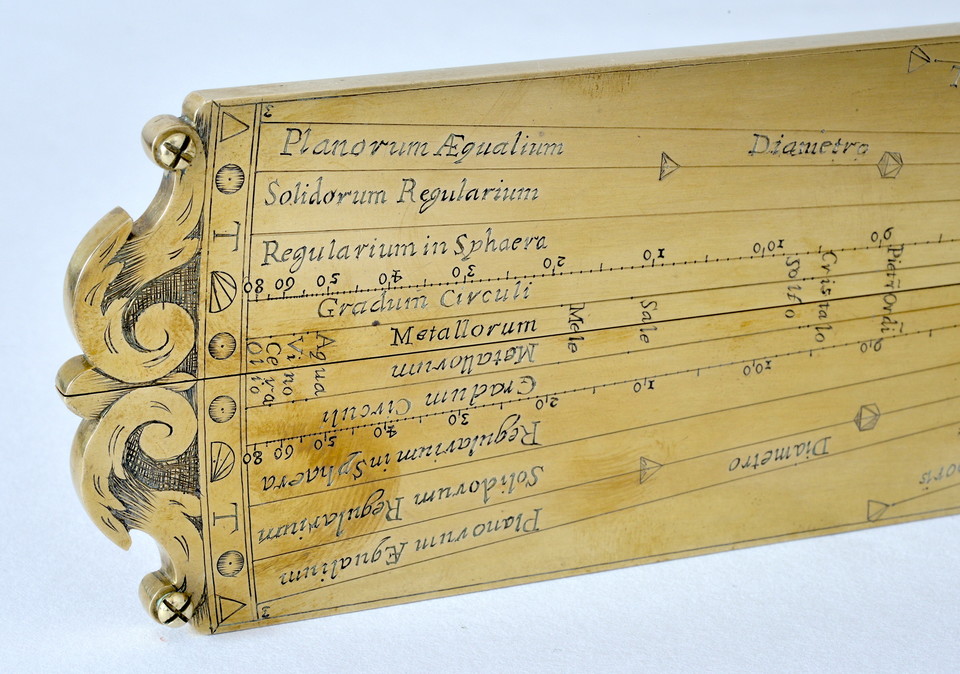 3
Planorum Æqualium
Diametro
Solidorum Regularium
Regularium in Sphaera
80 60 50 40 30 20 10
Gradum Circuli
Metallorum
Mele
Sale
Solfo
Cristalo
Agua
Vino
Cera
Olio
Metallorum
Gradum Circuli
80 60 50 40 30 20 10
Regularium in Sphaera
Solidorum Regularium
Diametro
Planorum Æqualium
3